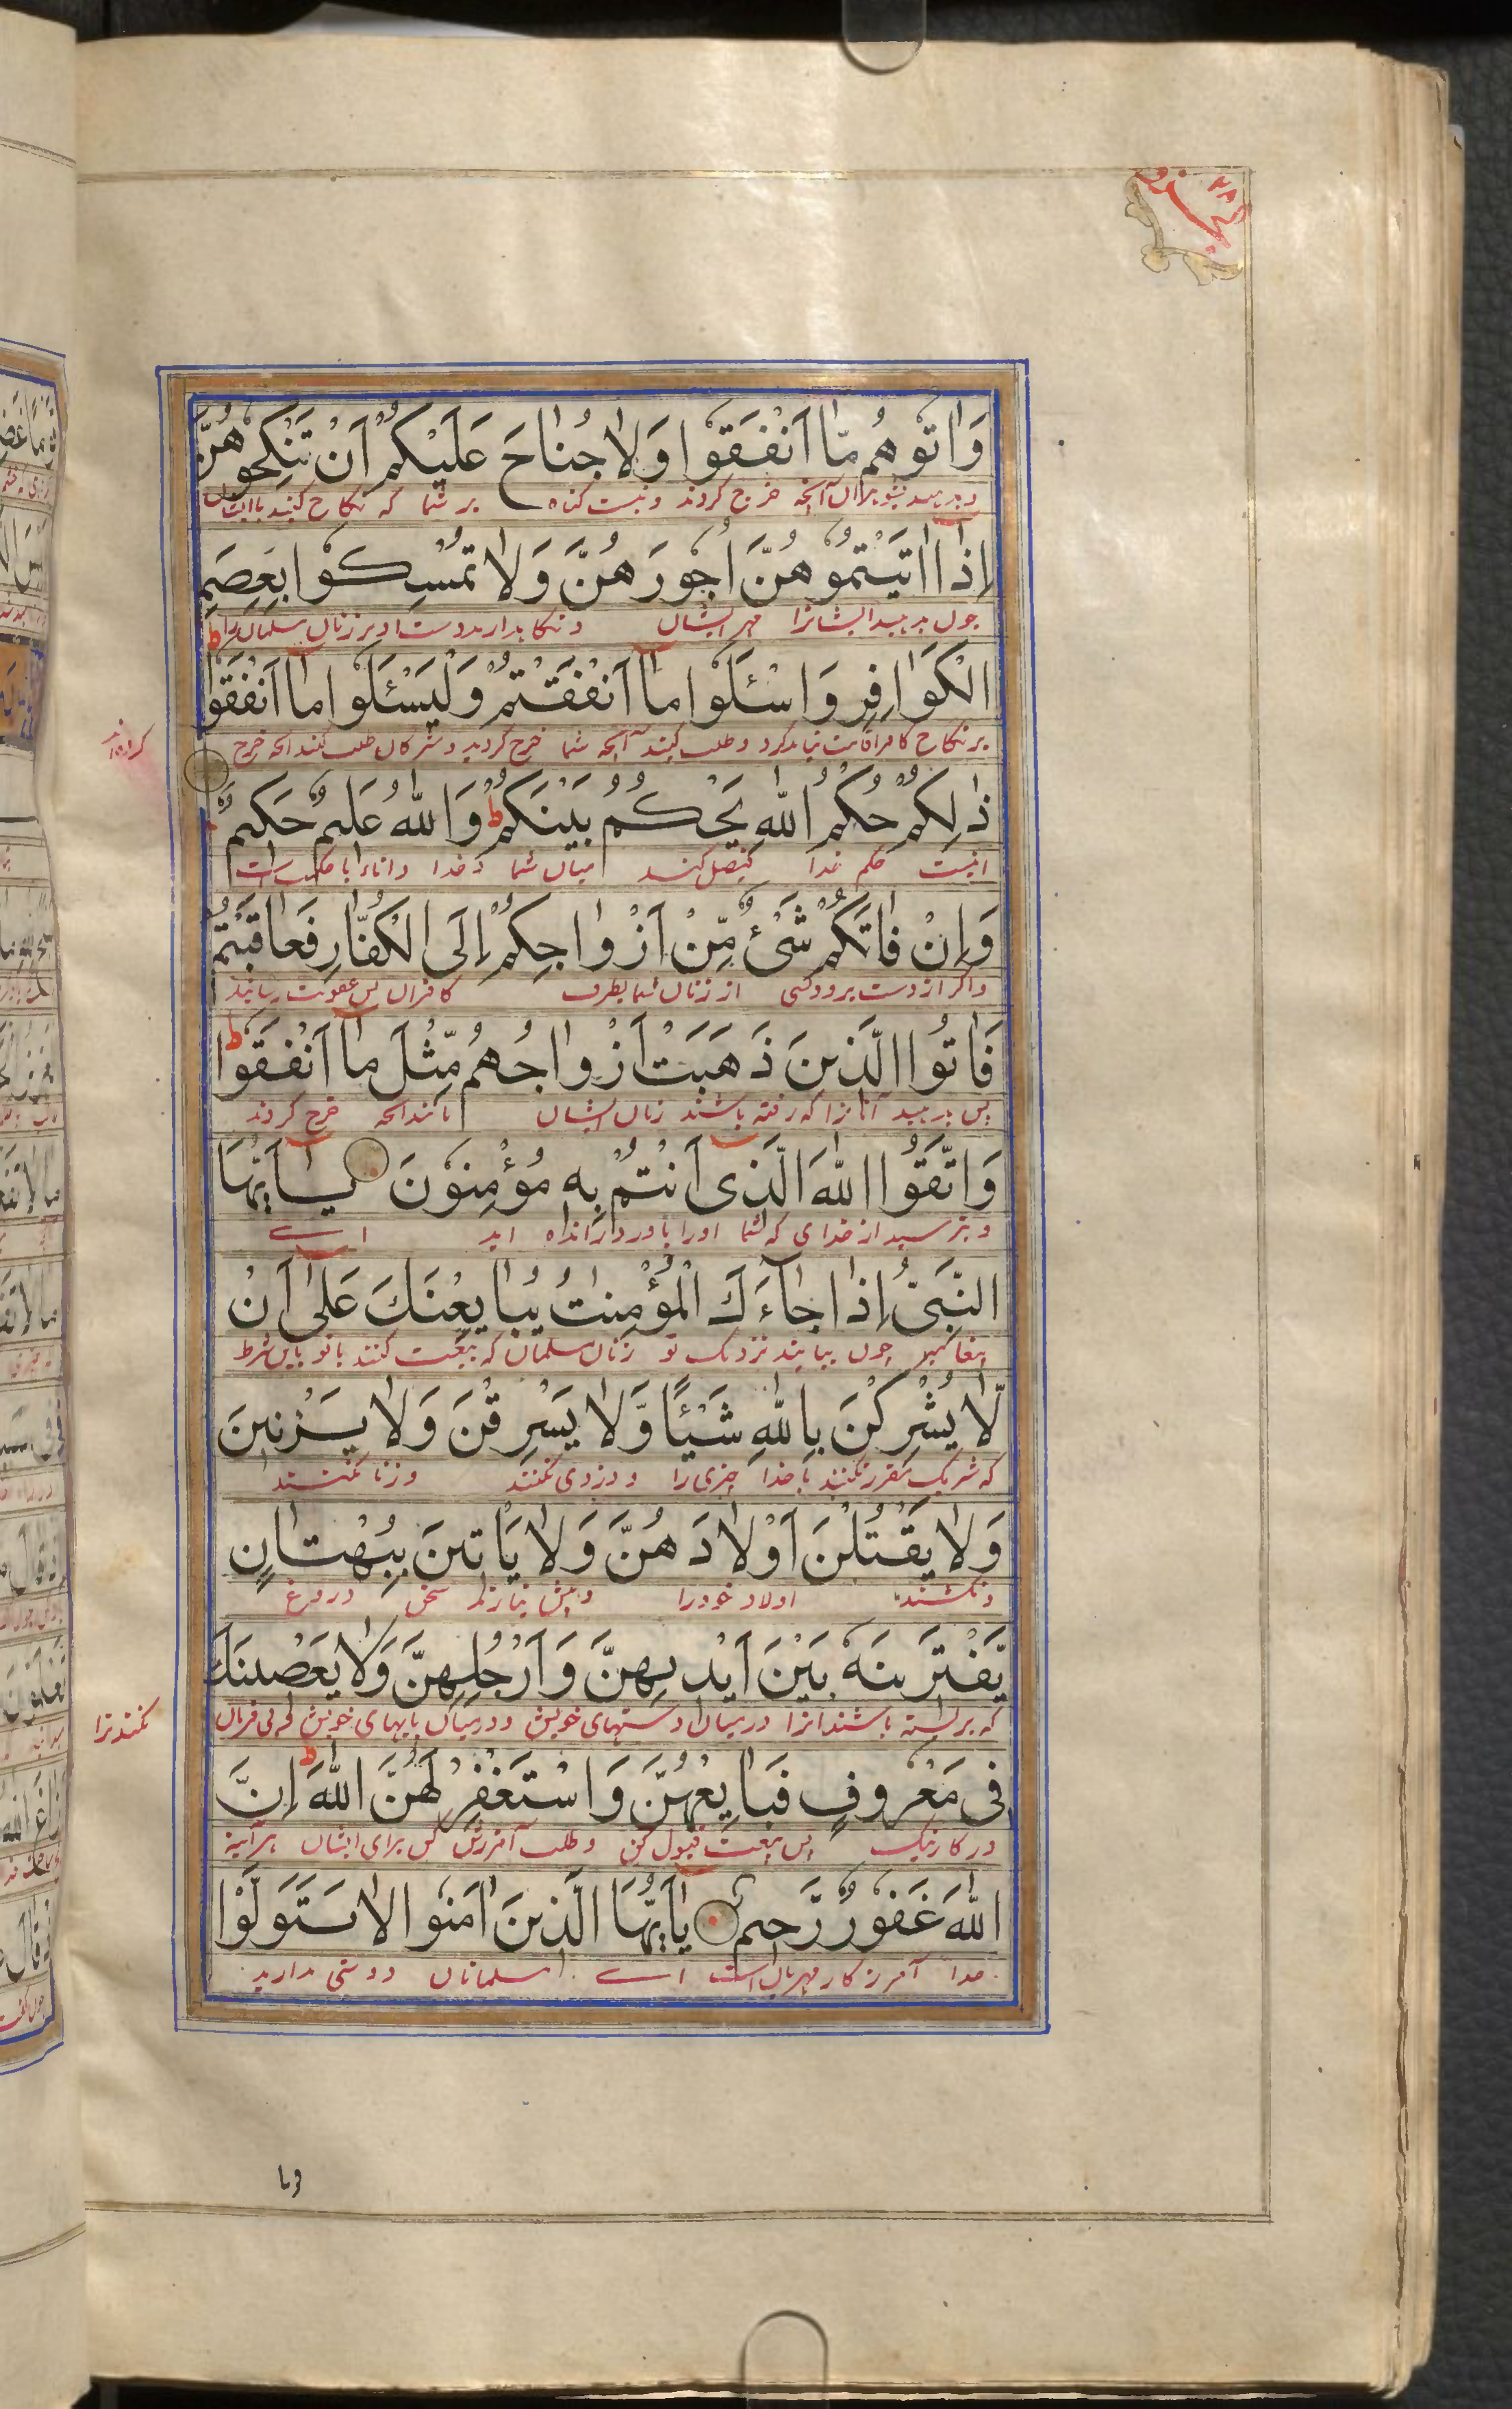 الجزو ٢٨
وَاٰتُوهُم مَّا اَنْفَقُوا وَلَا جُنَاحَ عَلَيْكُمْ اَنْ تَنْكِحُوهُنَّ
آنچه خرج کردند و نیست کناه بر شما که نکاح کنید باایشان
اِذَا اٰتَيْتُمُوهُنَّ اُجُورَهُنَّ وَلَا تُمْسِكُوا بِعِصَمِ
چون بدهید ایشانرا مهر ایشان و نکاه مدارید
الْكَوَافِرِ وَاسْئَلُوا مَا اَنْفَقْتُمْ وَلْيَسْئَلُوا مَا اَنْفَقُوا ط
و طلب کنید آنچه شما خرج کردید و مشرکان طلب کنند انچه خرج
کرده‌اند
ذٰلِكُمْ حُكْمُ اللّٰهِ يَحْكُمُ بَيْنَكُمْ ط وَاللّٰهُ عَلِيمٌ حَكِيمٌ
اینست حکم خدا فیصل کند میان شما و خدا داناء با حکمت است
وَاِنْ فَاتَكُمْ شَىْءٌ مِّنْ اَزْوَاجِكُمْ اِلَى الْكُفَّارِ فَعَاقَبْتُمْ
و اکر از دست برود کسی از زنان شما بطرف کافران پس عقوبت رسانید
فَاٰتُوا الَّذِينَ ذَهَبَتْ اَزْوَاجُهُمْ مِّثْلَ مَا اَنْفَقُوا ط
پس بدهید آنانرا که رفته باشند زنان ایشان مانند انچه خرج کردند
وَاتَّقُوا اللّٰهَ الَّذِى اَنْتُمْ بِهِ مُؤْمِنُونَ يَا اَيُّهَا
و بترسید از خدای که شما اورا باور دارنده اید اے
النَّبِىُّ اِذَا جَاءَكَ الْمُؤْمِنٰتُ يُبَايِعْنَكَ عَلٰى اَنْ
پیغامبر چون بیایند نزدیک تو زنان مسلمان که بیعت کنند باتو باین شرط
لَّا يُشْرِكْنَ بِاللّٰهِ شَيْئًا وَّلَا يَسْرِقْنَ وَلَا يَزْنِينَ
که شریک مقرر نکنند با خدا چیزی را و دزدی نکنند و زنا نکنند
وَلَا يَقْتُلْنَ اَوْلَادَهُنَّ وَلَا يَاْتِينَ بِبُهْتَانٍ
و نکشند اولاد خودرا و پیش نیارند سخن دروغ
يَّفْتَرِينَهُ بَيْنَ اَيْدِيهِنَّ وَاَرْجُلِهِنَّ وَلَا يَعْصِينَكَ
که بربسته باشند انرا درمیان دستهای خویش و درمیان پایهای خویش
نکنند ترا
فِى مَعْرُوفٍ فَبَايِعْهُنَّ وَاسْتَغْفِرْ لَهُنَّ اللّٰهَ ط اِنَّ
در کار نیک پس بیعت قبول کن و طلب آمرزش کن برای ایشان هرآینه
اللّٰهَ غَفُورٌ رَّحِيمٌ يٰاَيُّهَا الَّذِينَ اٰمَنُوا لَا تَتَوَلَّوْا
خدا آمرزکار مهربان است اے مسلمانان دوستی مدارید